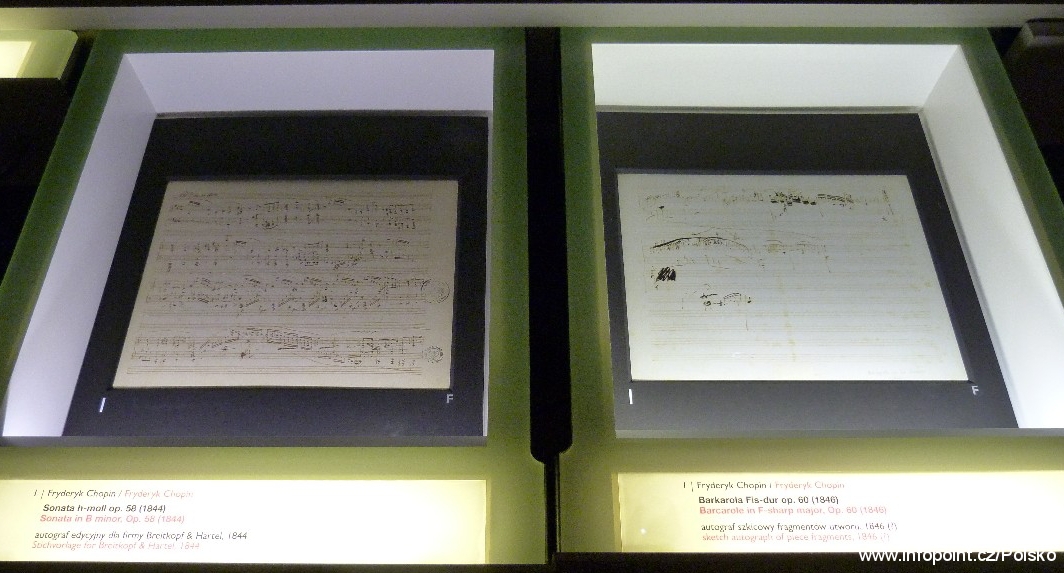 I
F
I
F
1 | Fryderyk Chopin / Fryderyk Chopin
Sonata h-moll op. 58 (1844)
Sonata in B minor, Op. 58 (1844)
autograf edycyjny dla firmy Breitkopf & Härtel, 1844
Stichvorlage for Breitkopf & Härtel, 1844
1 | Fryderyk Chopin / Fryderyk Chopin
Barkarola Fis-dur op. 60 (1846)
Barcarole in F-sharp major, Op. 60 (1846)
autograf szkicowy fragmentów utworu, 1846 (?)
sketch autograph of piece fragments, 1846 (?)
www.infopoint.cz/Polsko